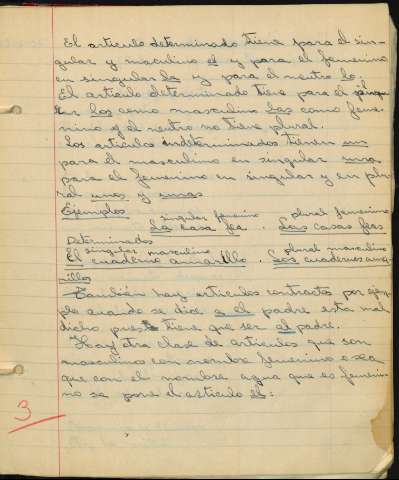 El articulo determinado tiene para el sin-
gular y masculino el y para el femenino
en singular la y para el neutro lo.
El articulo determinado tiene para el
los como masculino las como feme-
nino y el neutro no tiene plural.
Los articulos indeterminados tienen un
para el masculino en singular una
para el femenino en singular y en plu-
ral unos y unas
Ejemplos singular femenino plural femenino
La casa fea. Las casas feas
Determinados
singular masculino plural masculino
El cuaderno amarillo. Los cuadernos ama-
rillos
También hay articulos contractos por ejem-
plo cuando se dice a el padre esta mal
dicho pues tiene que ser al padre.
Hay otra clase de articulos que son
masculino con nombre femenino o sea
que con el nombre agua que es femeni-
no se pone el articulo el:
3